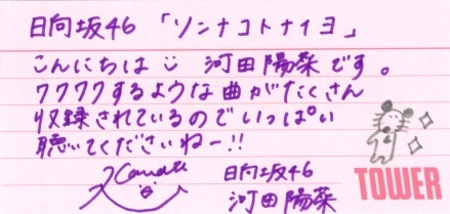 日向坂46 「ソンナコトナイヨ」
こんにちは 河田陽菜です。
ワクワクするような曲がたくさん
収録されているのでいっぱい
聴いてくださいねー!!
Kawata 日向坂46
河田陽菜
TOWER